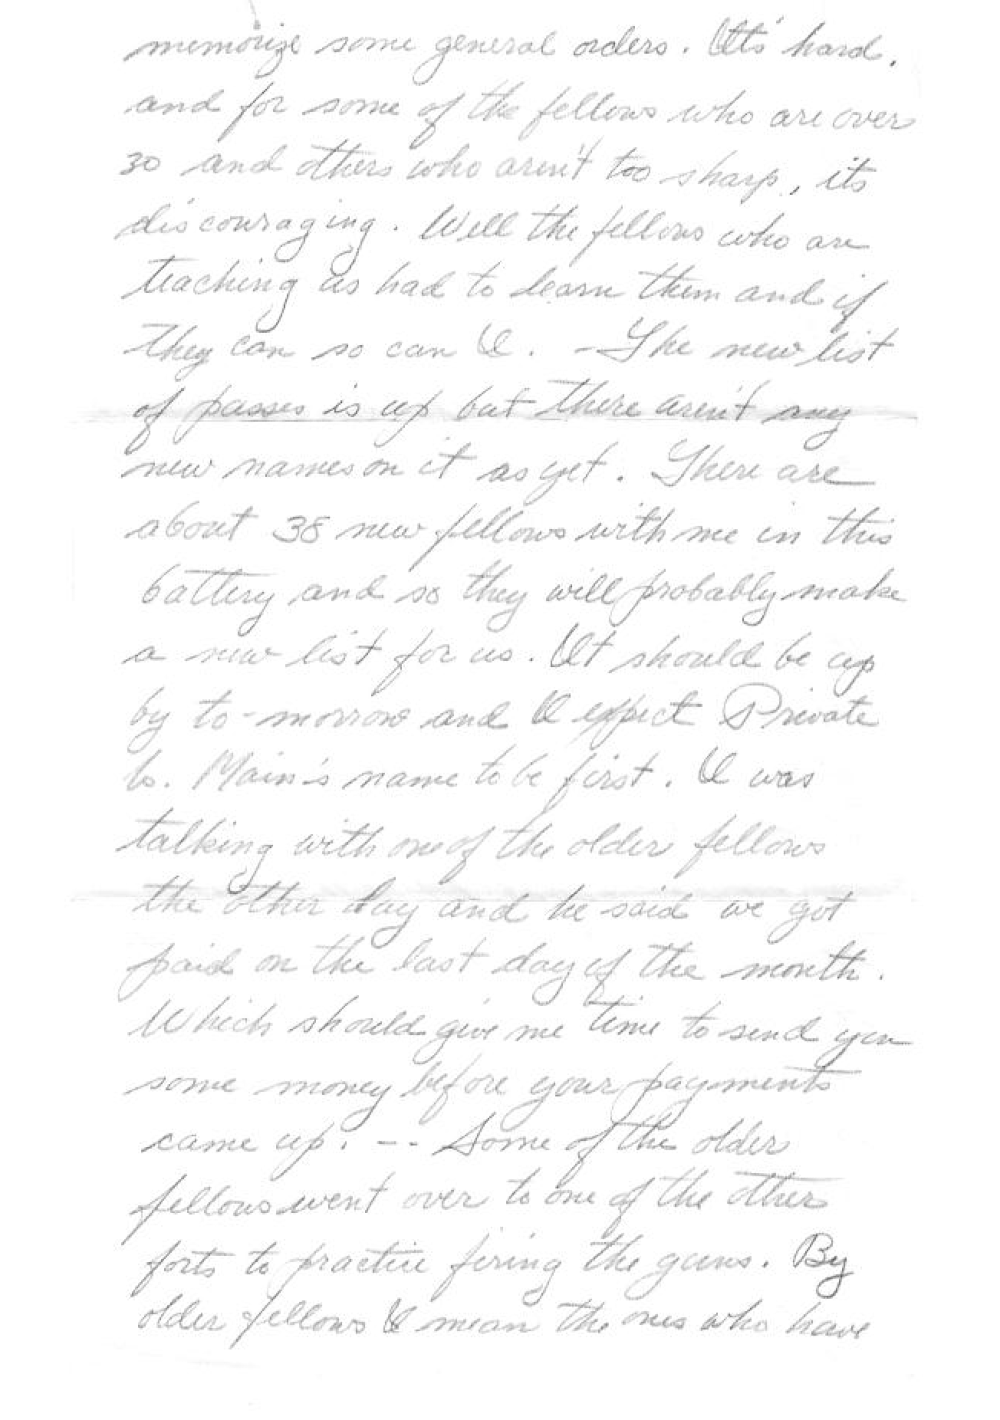 memorize some general orders. It's hard,
and for some of the fellows who are over
30 and others who aren't too sharp, its
discouraging. Well the fellows who are
teaching us had to learn them and if
they can so can I. - The new list
of passes is up but there aren't any
new names on it as yet. There are
about 38 new fellows with me in this
battery and so they will probably make
a new list for us. It should be up
by to-morrow and I expect Private
Main's name to be first. I was
talking with one of the older fellows
the other day and he said we got
paid on the last day of the month.
Which should give me time to send you
some money before your payments
came up. -- Some of the older
fellows went over to one of the other
forts to practice firing the guns. By
older fellows I mean the ones who have